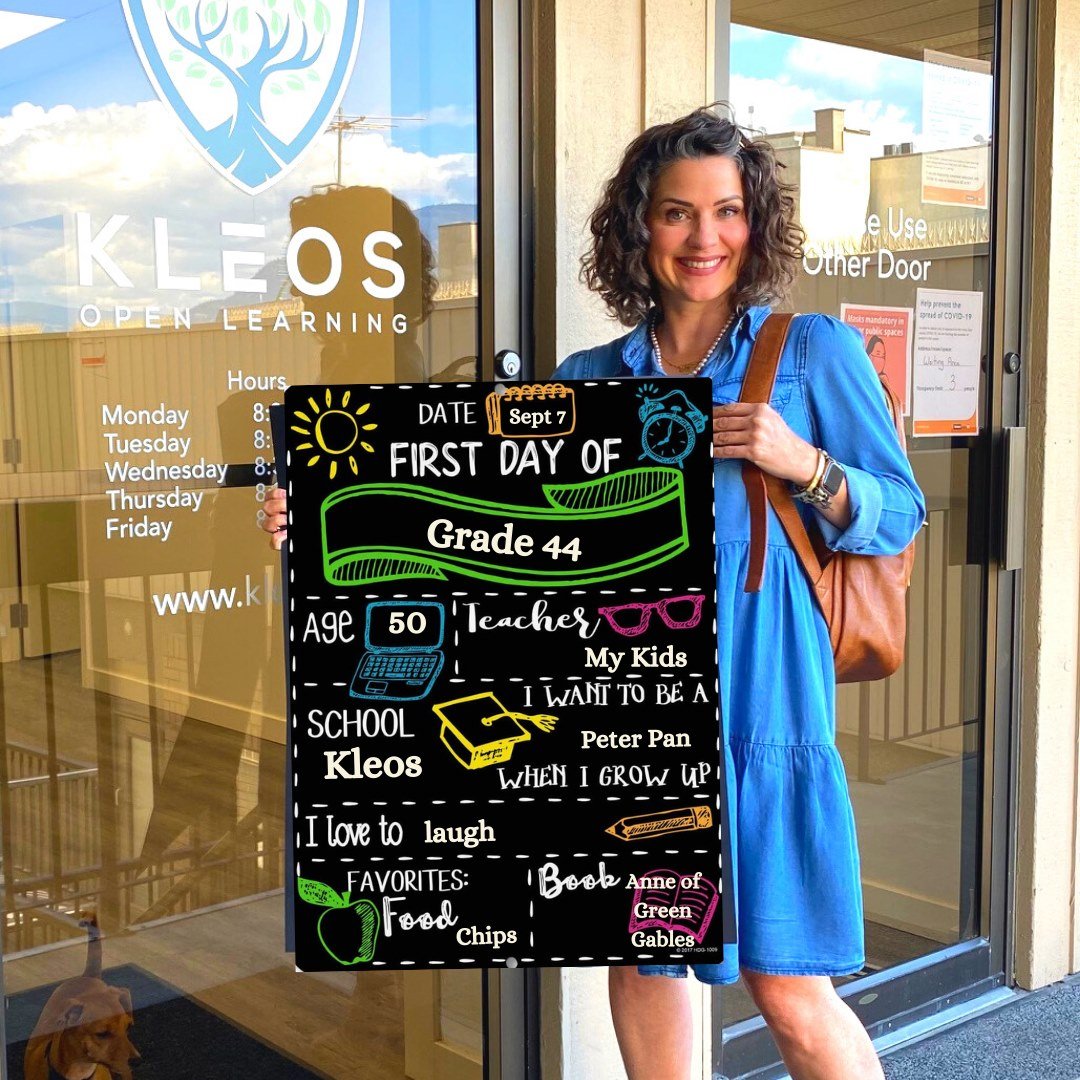 KLEOS
OPEN LEARNING
Hours
Monday 8:
Tuesday 8:
Wednesday 8:
Thursday 8:
Friday 8:
www.k
Use
Other Door
Masks mandatory in
public spaces
Help prevent the
spread of COVID-19
Waiting Area
3
DATE Sept 7
FIRST DAY OF
Grade 44
Age 50
Teacher
My Kids
SCHOOL
Kleos
I WANT TO BE A
Peter Pan
WHEN I GROW UP
I love to laugh
FAVORITES:
Food
Chips
Book Anne of
Green
Gables
© 2017 HDG-1009